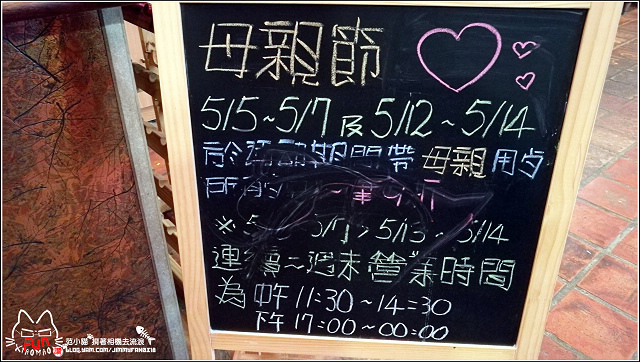 母親節
5/5~5/7 及 5/12~5/14
於 期間帶母親用占
所
※5 5/7、5/13~5/14
連續二週末營業時間
為中午11:30~14:30
下午17:00~00:00
范小貓 揹著相機去流浪
BLOG.YAM.COM/JIMMYFAN0210